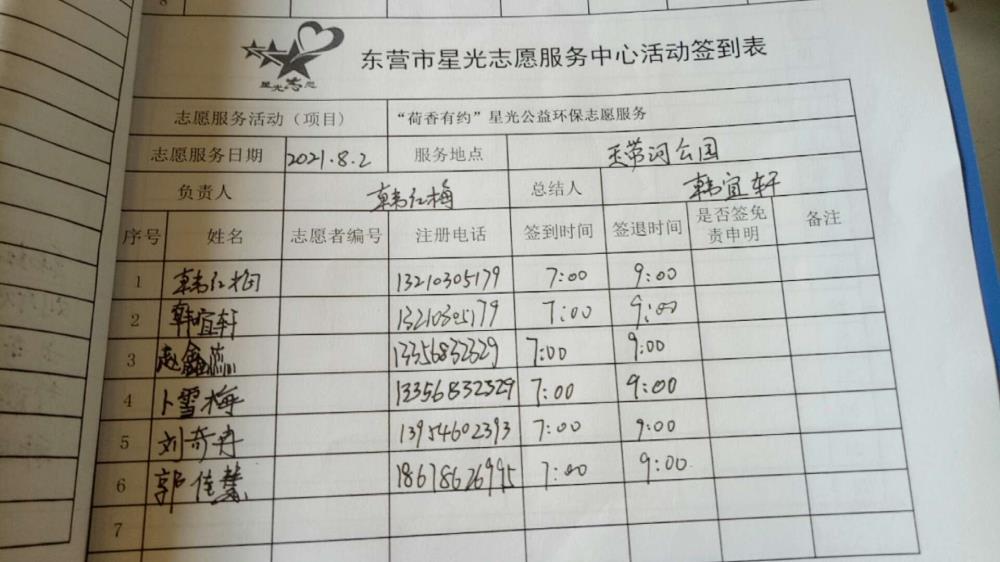 8
星光志愿
东营市星光志愿服务中心活动签到表
志愿服务活动（项目） “荷香有约”星光公益环保志愿服务
志愿服务日期 2021.8.2 服务地点 玉带河公园
负责人 韩红梅 总结人 韩宜轩
序号 姓名 志愿者编号 注册电话 签到时间 签退时间 是否签免责申明 备注
1 韩红梅 13210305179 7:00 9:00
2 韩宜轩 13210305179 7:00 9:00
3 赵鑫蕊 13356832329 7:00 9:00
4 卜雪梅 13356832329 7:00 9:00
5 刘奇冉 13954602393 7:00 9:00
6 郭佳慧 18678626995 7:00 9:00
7